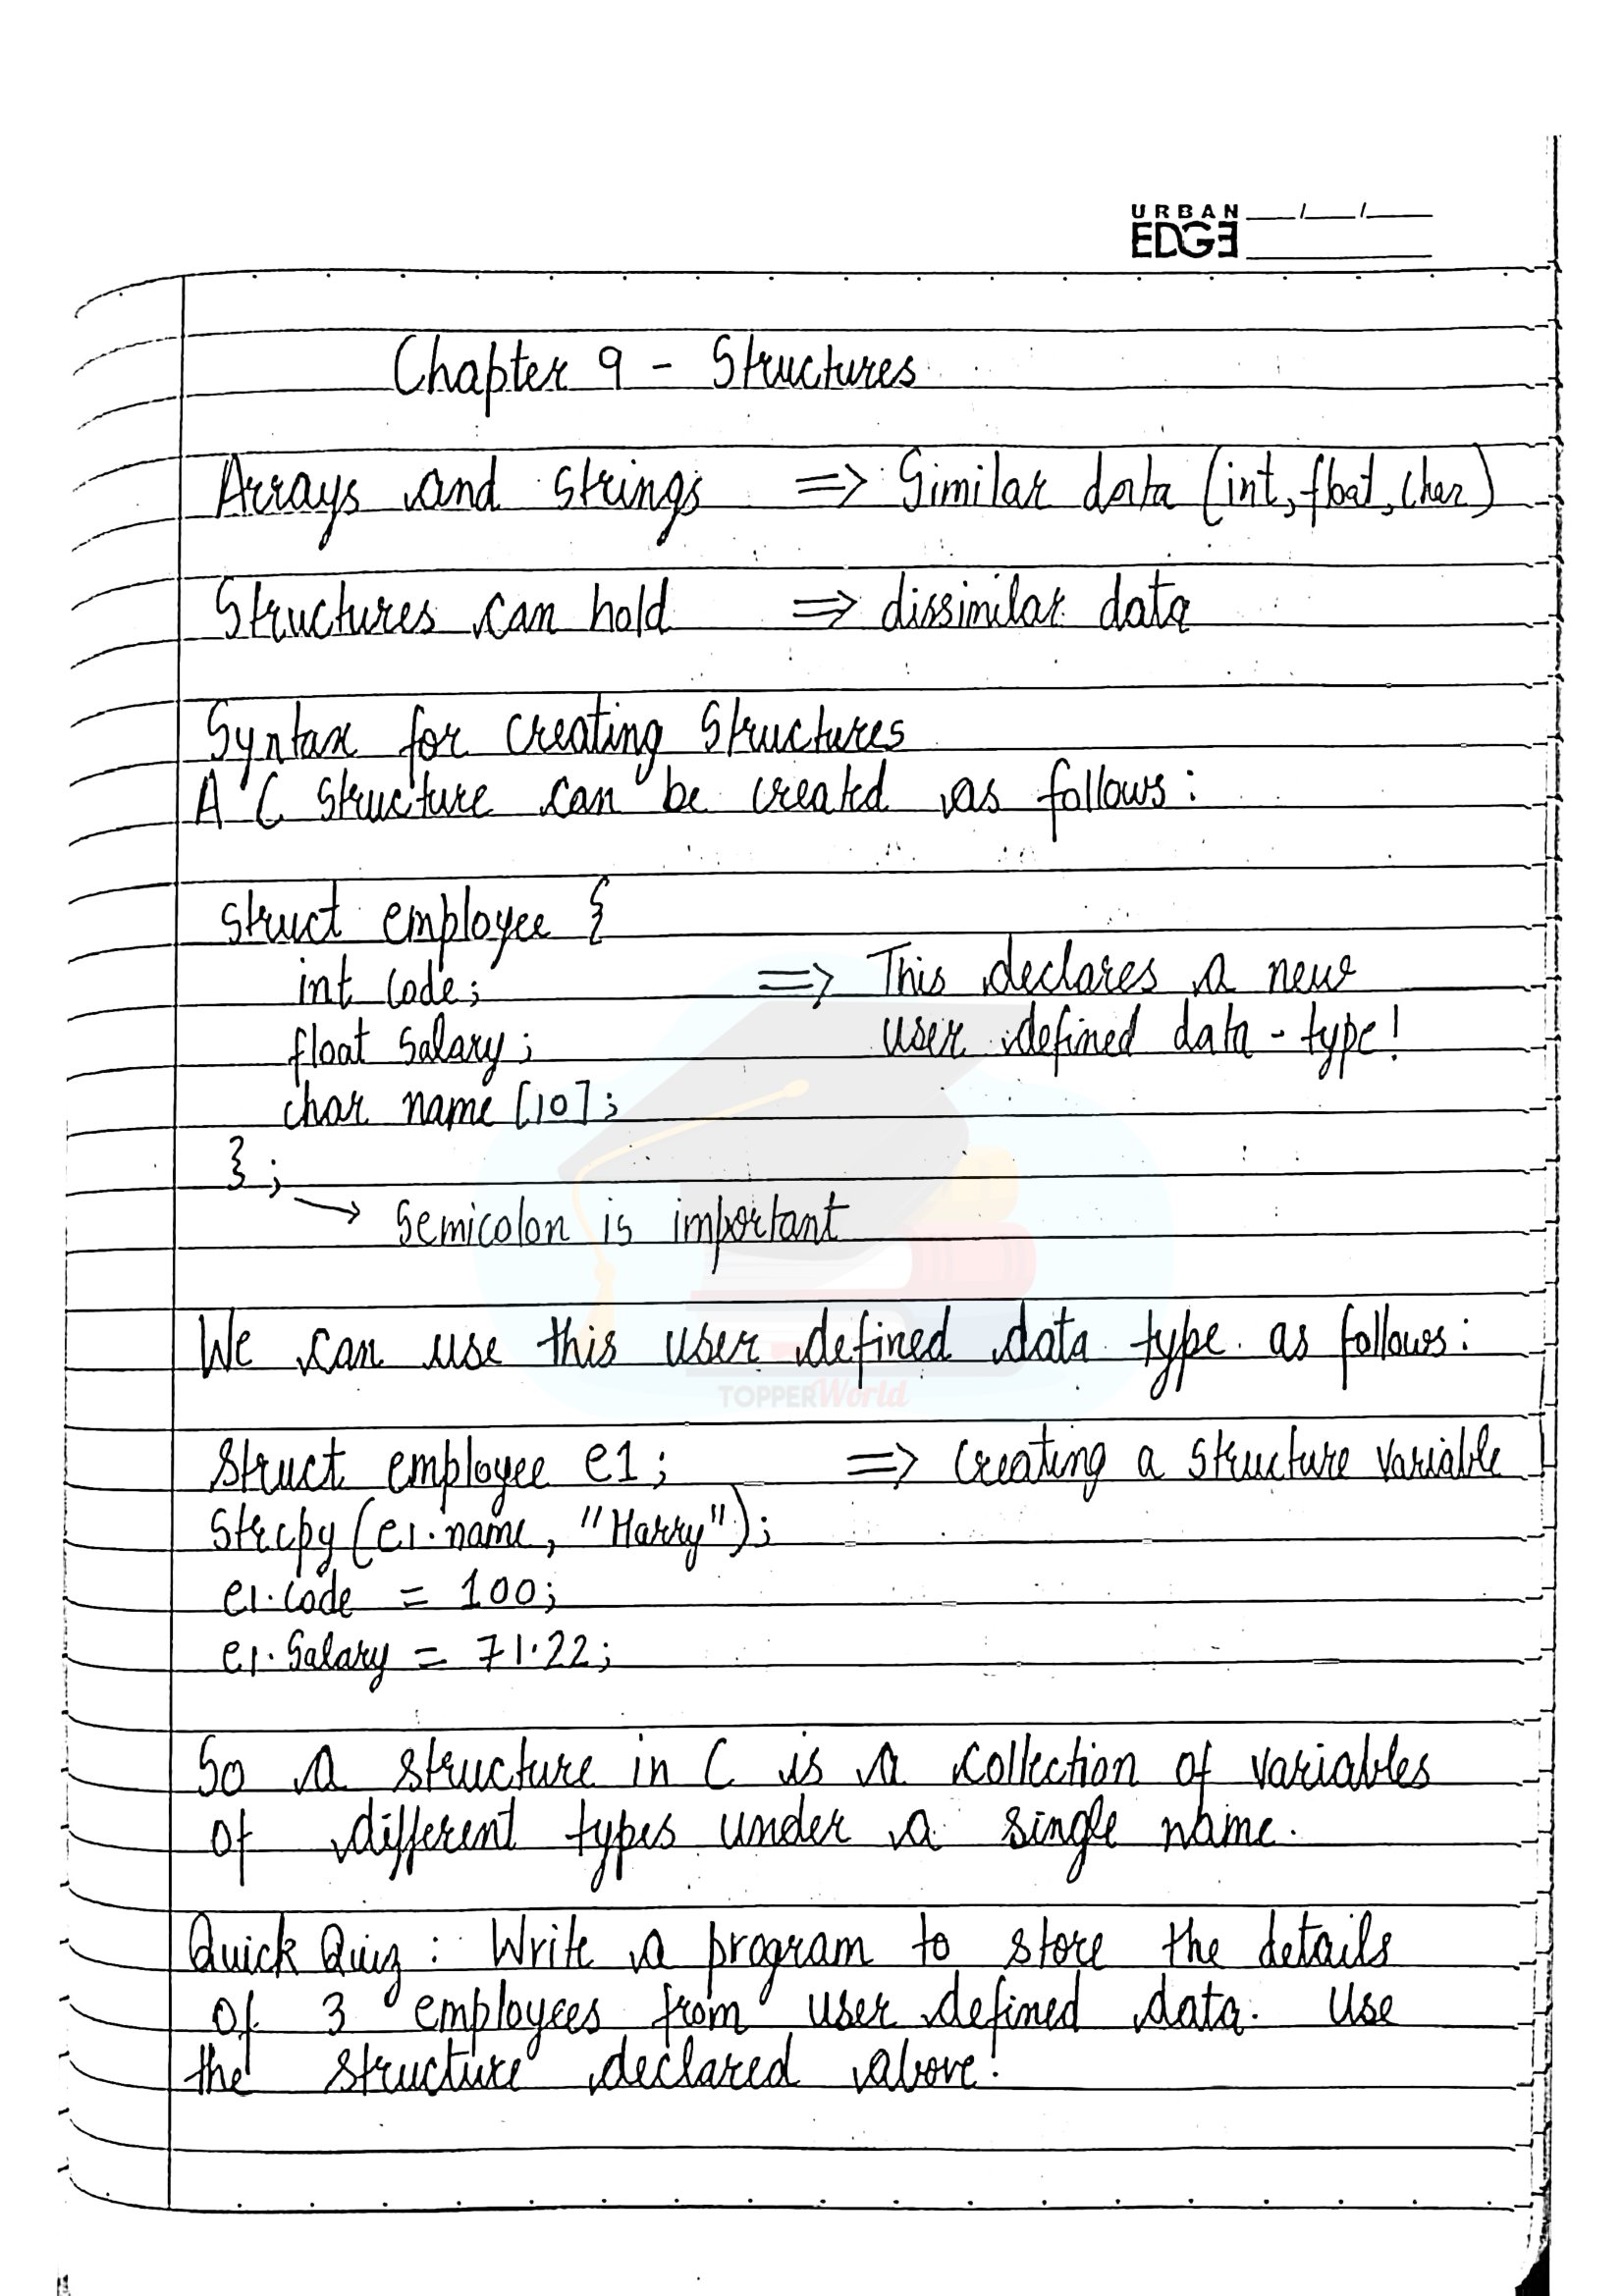 URBAN
EDGE
Chapter 9 - Structures
Arrays and strings => Similar data (int, float, char)
Structures can hold => dissimilar data
Syntax for creating Structures
A C Structure can be created as follows:
struct employee {
int code; => This declares a new
float salary; user defined data-type!
char name [10];
};
→ Semicolon is important
We can use this user defined data type as follows:
TOPPERWorld
Struct employee e1; => Creating a structure variable
Strcpy(e1.name, "Harry");
e1.code = 100;
e1.Salary = 71.22;
So a structure in C is a collection of variables
of different types under a single name.
Quick Quiz: Write a program to store the details
of 3 employees from user defined data. Use
the structure declared above!